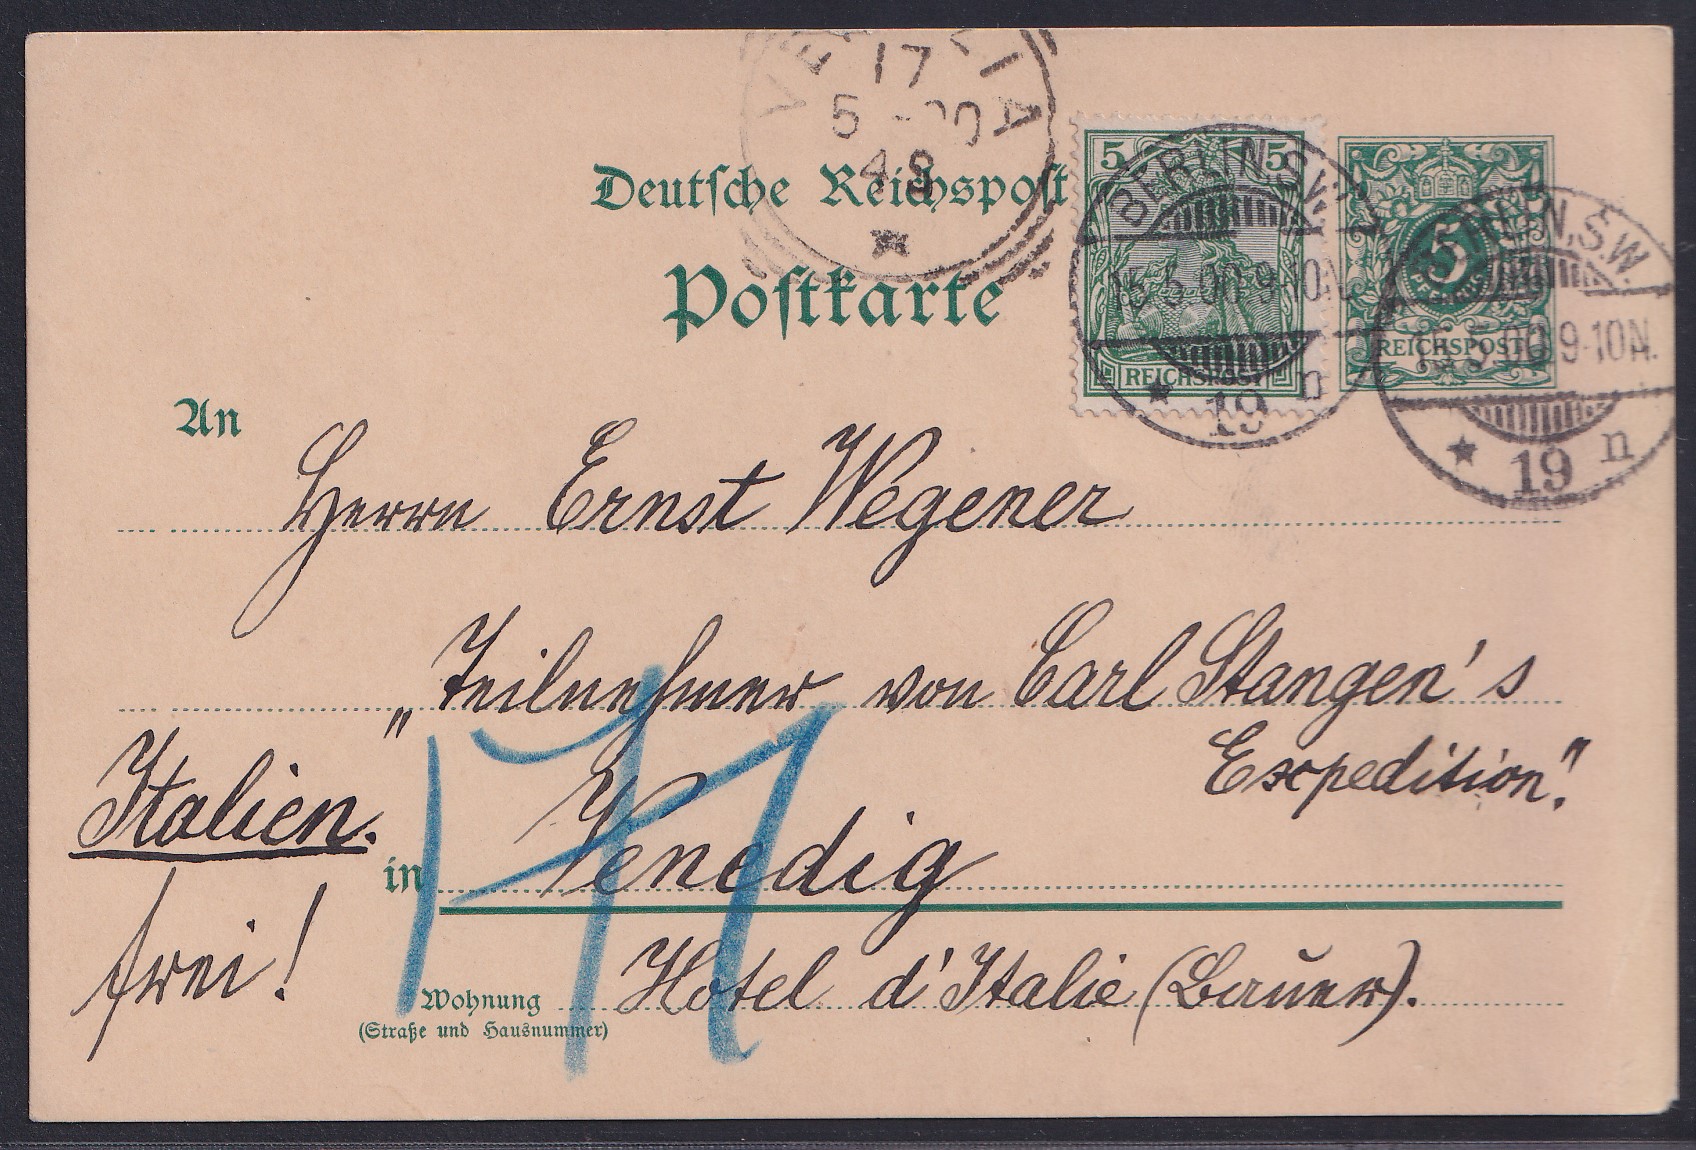 17
5
48
Deutsche Reichspost
Postkarte
5 5
REICHSPOST
BERLIN, S.W.
15.5.00.9-10N.
19 n
5
REICHSPOST
BERLIN, S.W.
5.00.9-10N.
19 n
An
Herrn Ernst Wegener
„Teilnehmer von Carl Stangen's
Expedition".
Italien.
frei!
in Venedig
Wohnung Hotel d'Italie (Bauer).
(Straße und Hausnummer)